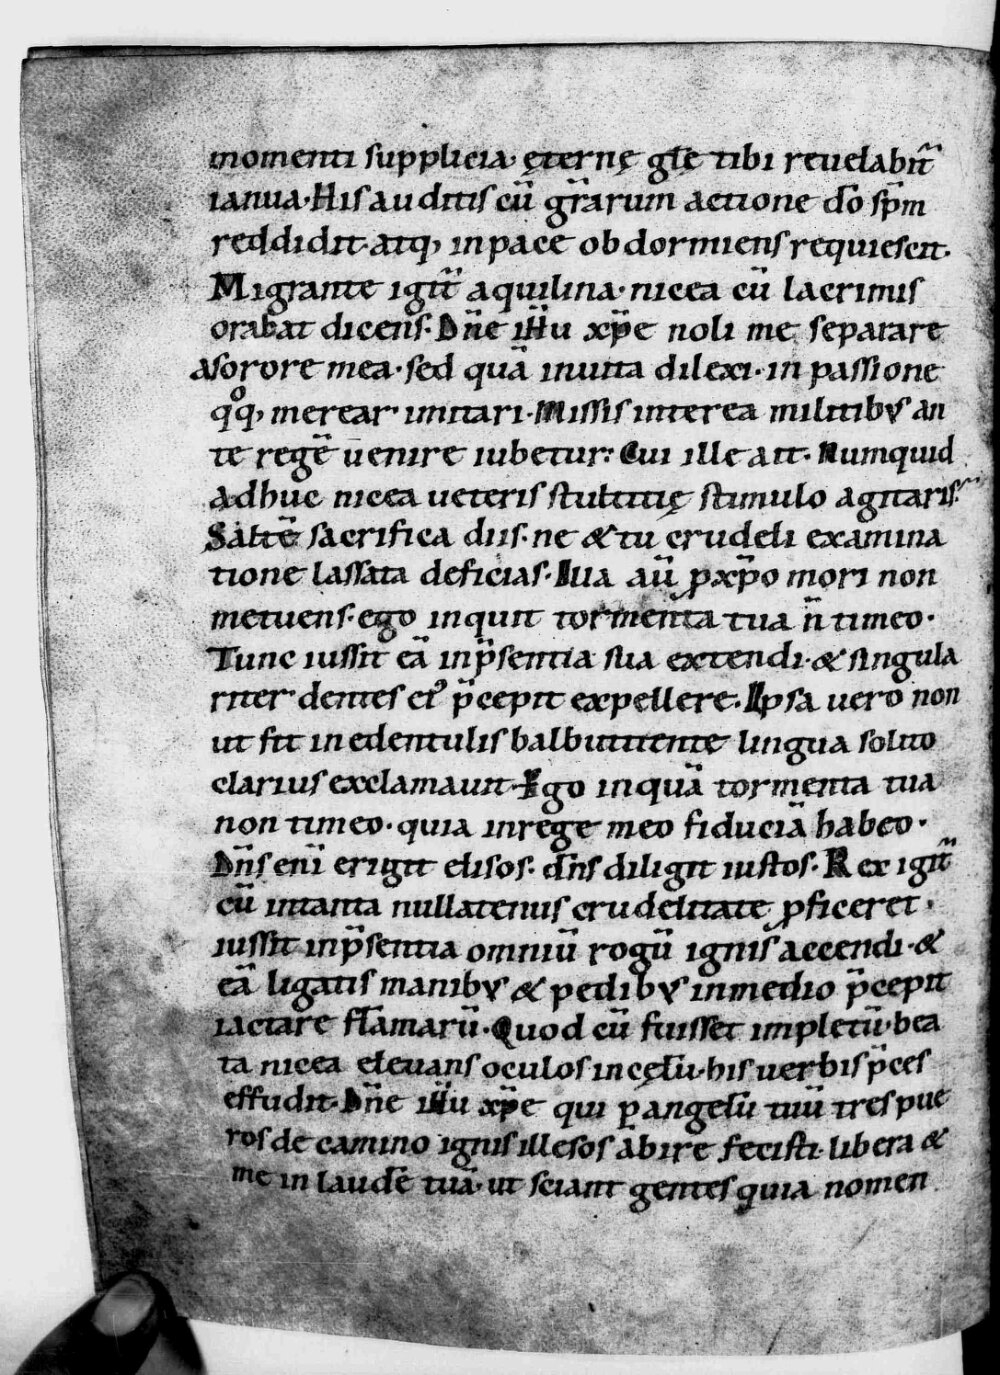 momenti supplicia, ęternę gl̄e tibi reuelabit̄
ianua. His auditis cū gr̄arum actione do̅ sp̅m
reddidit. atq; in pace obdormiens requiescit.
Migrante igit̄ aquilina. nicea cū lacrimis
orabat dicens. Dn̄e ihū xp̄e noli me separare
a sorore mea. sed quā inuita dilexi. in passione
qͦq; merear imitari. Missis interea militibꝰ an
te regē uenire iubetur. Cui ille ait. Numquid
adhuc nicea ueteris stultitię stimulo agitaris?
Saltē sacrifica diis. ne & tu crudeli examina
tione lassata deficias. Illa aū ꝓ xp̄o mori non
metuens. ego inquit tormenta tua n̄ timeo.
Tunc iussit eā in p̄sentia sua extendi. & singula
riter dentes eiꝰ p̄cepit expellere. Ipsa uero non
ut fit in edentulis balbutiente lingua solito
clarius exclamauit. Ego inquā tormenta tua
non timeo. quia in rege meo fiduciā habeo.
Dn̄s eni̅ erigit elisos. dn̄s diligit iustos. Rex igit̄
cū in tanta nullatenus crudelitate ꝓficeret.
iussit in p̄sentia omniū rogū ignis accendi. &
eā ligatis manibꝰ & pedibꝰ in medio p̄cepit
iactare flāmarū. Quod cū fuisset impletū. bea
ta nicea eleuans oculos in cęlū. his uerbis p̄ces
effudit. Dn̄e ihū xp̄e qui ꝑ angelū tuū tres pue
ros de camino ignis illesos abire fecisti. libera &
me in laudē tuā. ut sciant gentes quia nomen